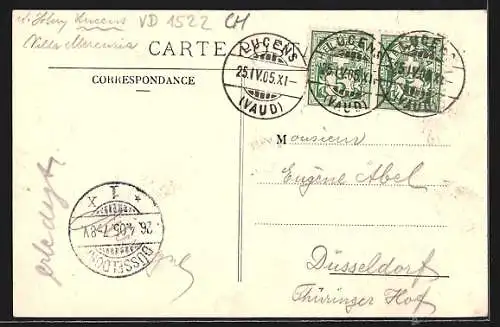 Lucens VD 1522 CH
Villa Mercuria
CARTE
CORRESPONDANCE
LUCENS
25.IV.05.XI-
(VAUD)
LUCENS
25.IV.05.XI-
(VAUD)
LUCENS
(VAUD)
Monsieur
Eugène Abel
Düsseldorf
Thüringer Hof
erledigt
DÜSSELDORF
26.4.05.7-8V.
* 1 x